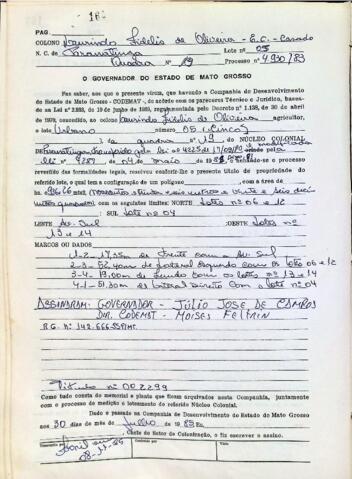 168
PAG
COLONO Laurindo Fidelis de Oliveira - E.C. - Casado
N. C. de Paranatinga Lote nº 05
Quadra nº 19 Processo nº 4.930/83
O GOVERNADOR DO ESTADO DE MATO GROSSO
Faz saber, aos que o presente virem, que havendo a Companhia de Desenvolvimento
do Estado de Mato Grosso - CODEMAT -, de acôrdo com os pareceres Técnico e Jurídico, baseados
na Lei nº de 19 de junho de regulamentada pelo Decreto nº 1.138, de 30 de abril
de 1970, concedido, ao colono Laurindo Fidelis de Oliveira agricultor,
o lote Urbano número 05 (Cinco)
da quadra nº 19 DO NÚCLEO COLONIAL
de Paranatinga, pela Lei nº 4225 de
Lei nº 4287 de 04 de maio achando-se o processo
revestido das formalidades legais, resolveu conferir-lhe o presente título de propriedade
do referido lote, o qual tem a configuração de um polígono com a área de
com os seguintes limites: NORTE Lotes nº 06 e 12
SUL Lote nº 04
LESTE Av. Sul OESTE Lotes nº
13 e 14
MARCOS OU DADOS
1-2 - de Frente com Av. Sul
2-3 - 52,40m de lateral esquerda com os lotes 06 e 12
3-4 - 19,00m de fundo com os lotes nº 13 e 14
4-1 - 51,30m de lateral direito com o lote nº 04
ASSINARAM: GOVERNADOR - JÚLIO JOSÉ DE CAMPOS
DIR. CODEMAT - MOISES FELTRIN
R.G. nº 142.666.SSP/MT.
Título nº 002299
Como tudo consta do memorial e planta que ficam arquivados nesta Companhia, juntamente
com o processo de medição e loteamento do referido Núcleo Colonial.
Dado e passado na Companhia de Desenvolvimento do Estado de Mato Grosso
aos 30 dias do mês de Julho de 1985
Chefe do Setor de Colonização, o fiz escrever e assino.